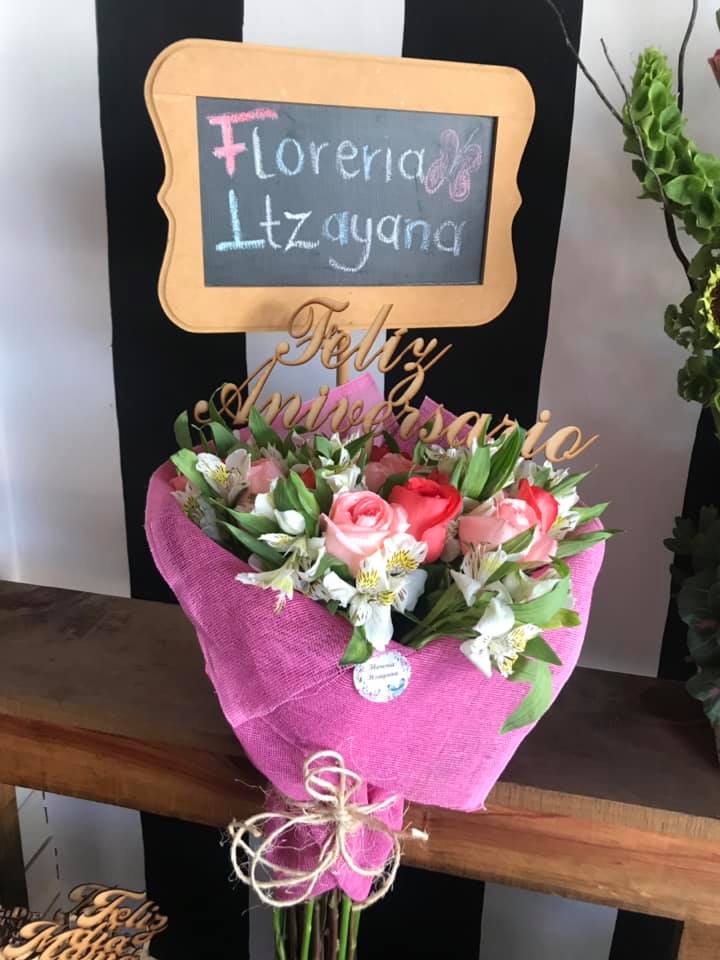 Floreria
Itzayana
Feliz
Aniversario
Floreria
Itzayana
Feliz